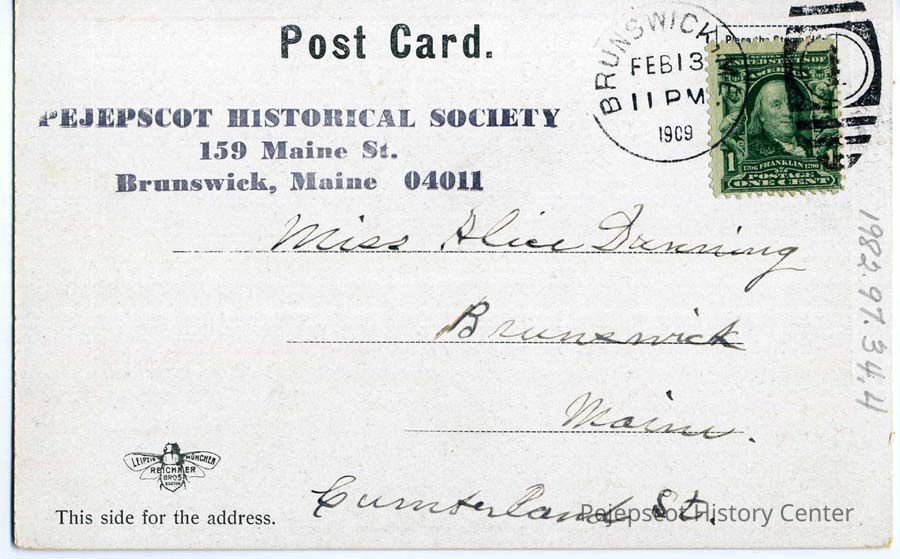 Post Card.
BRUNSWICK, ME.
FEB 13
11 PM
1909
Place the Stamp
UNITED STATES OF
AMERICA
1 1706 FRANKLIN 1790 1
POSTAGE
ONE CENT
PEJEPSCOT HISTORICAL SOCIETY
159 Maine St.
Brunswick, Maine 04011
Miss Alice Dunning
Brunswick
Maine.
Cumberland St.
1982.97.34.4
LEIPZIG MÜNCHEN
REICHNER
BROS
BOSTON
This side for the address.
Pejepscot History Center